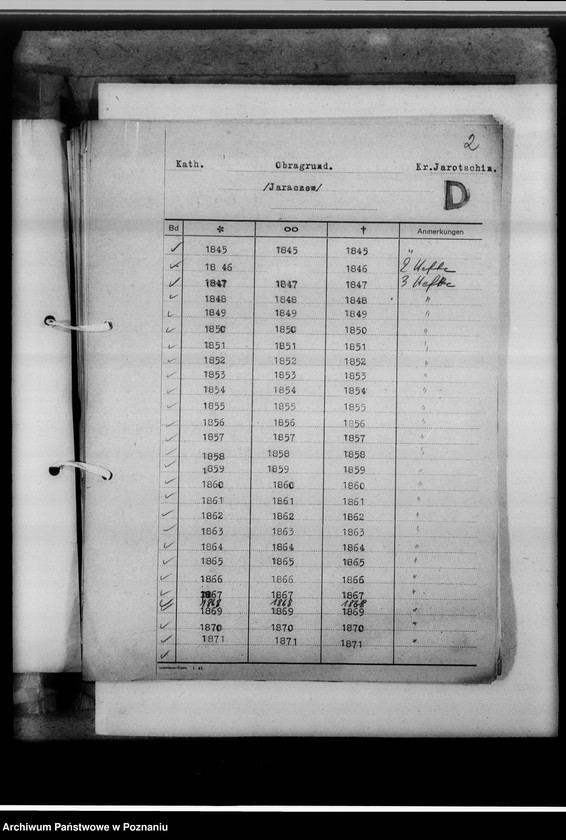 2
Kath. Obragrund. Kr.Jarotschin.
/Jaraczew/
D
Bd * oo † Anmerkungen
✓ 1845 1845 1845 "
✓ 18 46 1846 2 Hefte
✓ 1847 1847 1847 3 Hefte
✓ 1848 1848 1848 "
✓ 1849 1849 1849 "
✓ 1850 1850 1850 "
✓ 1851 1851 1851 "
✓ 1852 1852 1852 "
✓ 1853 1853 1853 "
✓ 1854 1854 1854 "
✓ 1855 1855 1855 "
✓ 1856 1856 1856 "
✓ 1857 1857 1857 "
✓ 1858 1858 1858 "
✓ 1859 1859 1859 "
✓ 1860 1860 1860 "
✓ 1861 1861 1861 "
✓ 1862 1862 1862 "
✓ 1863 1863 1863 "
✓ 1864 1864 1864 "
✓ 1865 1865 1865 "
✓ 1866 1866 1866 "
✓ 1867 1867 1867 "
✓ 1868 1868 1868
✓ 1869 1869 1869 "
✓ 1870 1870 1870 "
✓ 1871 1871 1871 "
✓
Archiwum Państwowe w Poznaniu